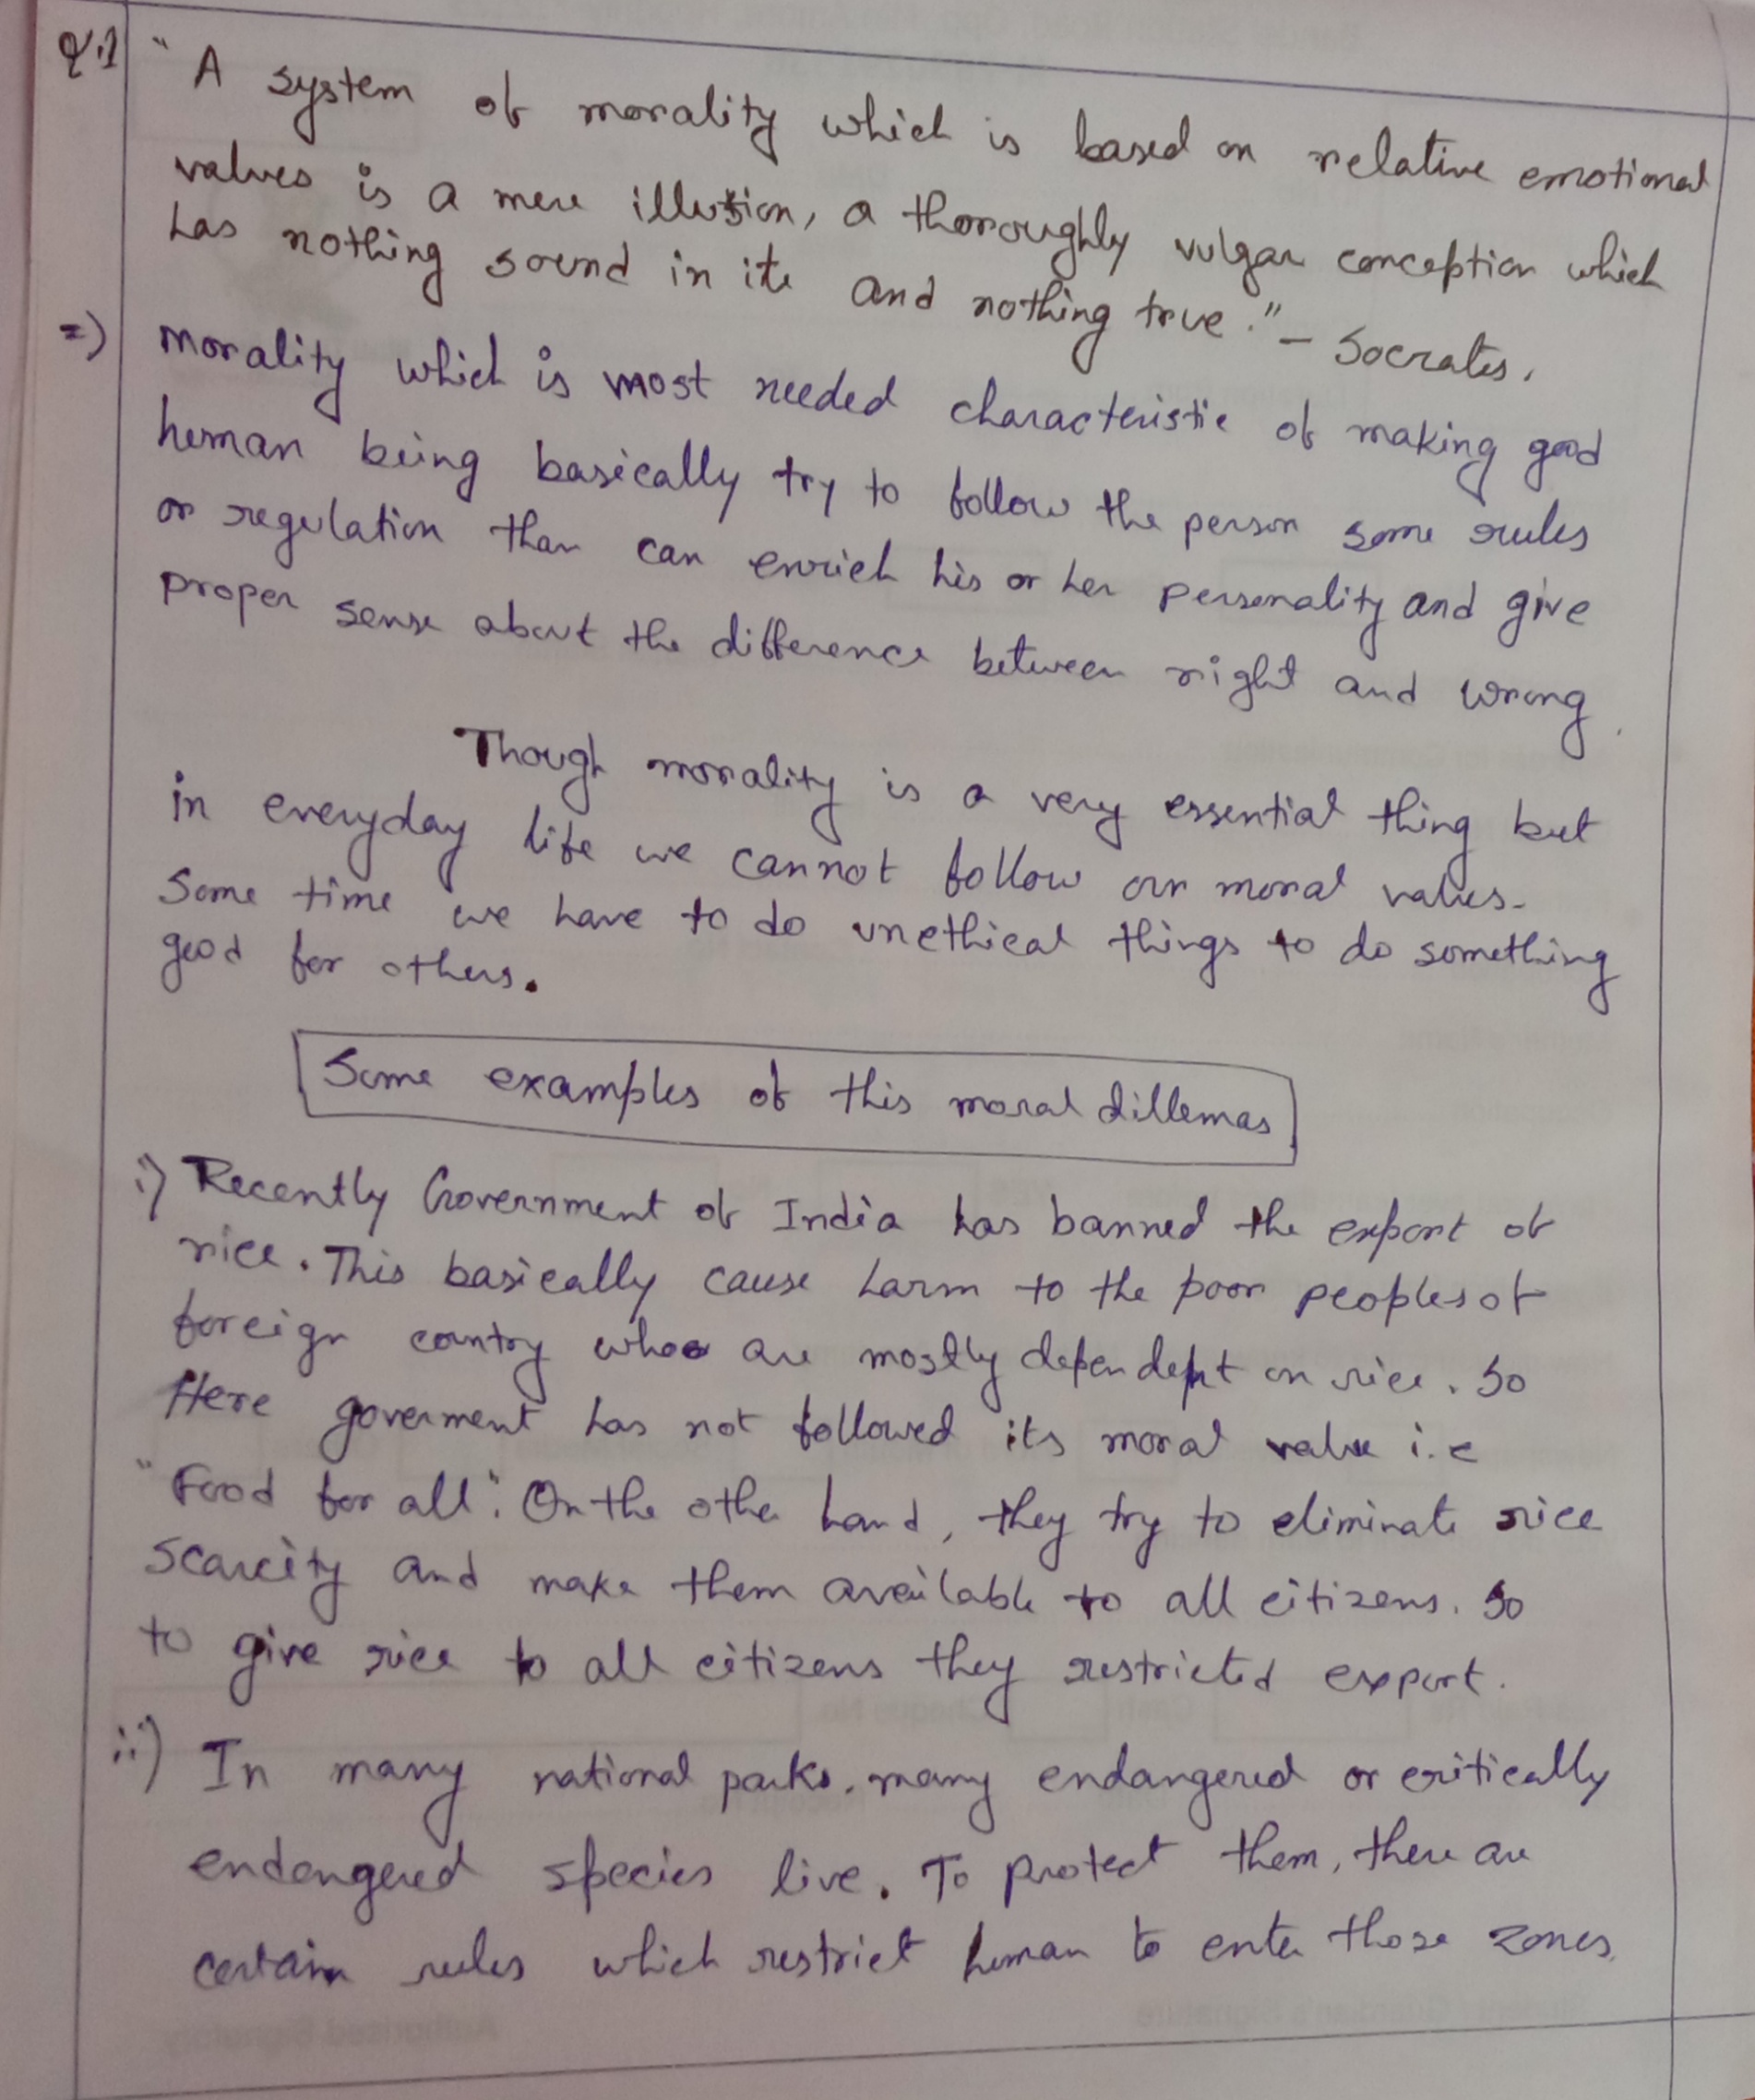 Q.1 "A system of morality which is based on relative emotional
values is a mere illusion, a thoroughly vulgar conception which
has nothing sound in it and nothing true." - Socrates.
=) Morality which is most needed characteristic of making good
human being basically try to follow the person some rules
or regulation than can enrich his or her personality and give
proper sense about the difference between right and wrong.
Though morality is a very essential thing but
in everyday life we cannot follow our moral values.
Some time we have to do unethical things to do something
good for others.
Some examples of this moral dillemas
i) Recently Government of India has banned the export of
rice. This basically cause harm to the poor peoples of
foreign country who are mostly dependent on rice. So
Here goverment has not followed its moral value i.e
"Food for all". On the othe hand, they try to eliminate rice
scarcity and make them available to all citizens. So
to give rice to all citizens they restricted export.
ii) In many national parks, many endangered or critically
endangered species live. To protect them, there are
certain rules which restrict human to enter those zones.